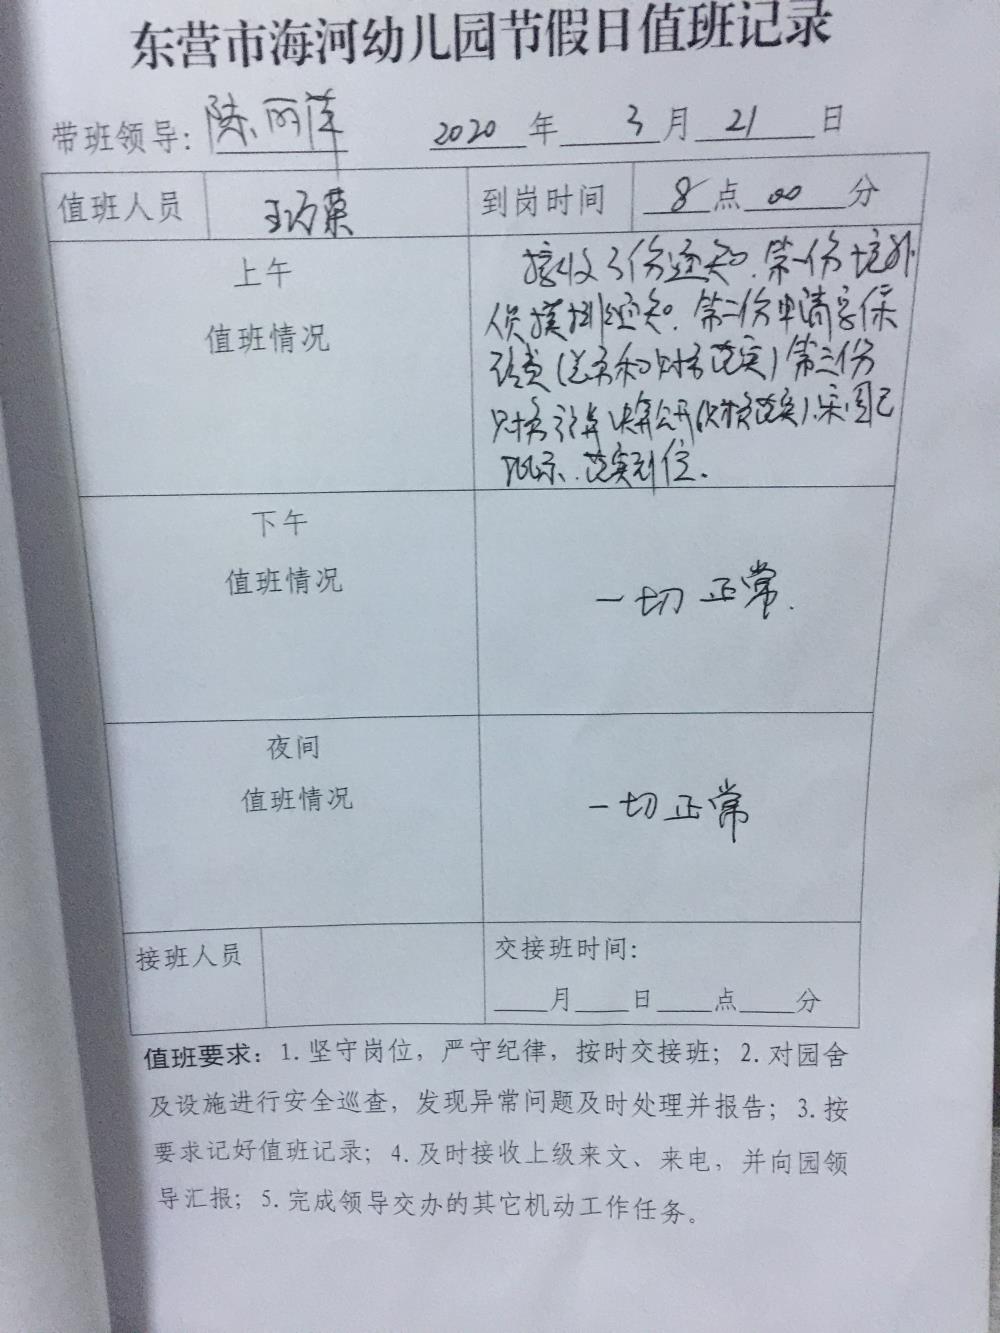 东营市海河幼儿园节假日值班记录
带班领导: 陈丽萍 2020 年 3 月 21 日
值班人员 王巧荣 到岗时间 8 点 00 分
上午
值班情况
接收3份通知.第一份境外
人员摸排通知.第二份申请安保
经费(总务和财务落实)第三份
财务预算决算公开(财务落实).宋园已
批示.落实到位.
下午
值班情况
一切正常.
夜间
值班情况
一切正常
接班人员 交接班时间:
月 日 点 分
值班要求: 1. 坚守岗位，严守纪律，按时交接班；2. 对园舍
及设施进行安全巡查，发现异常问题及时处理并报告；3. 按
要求记好值班记录；4. 及时接收上级来文、来电，并向园领
导汇报；5. 完成领导交办的其它机动工作任务。